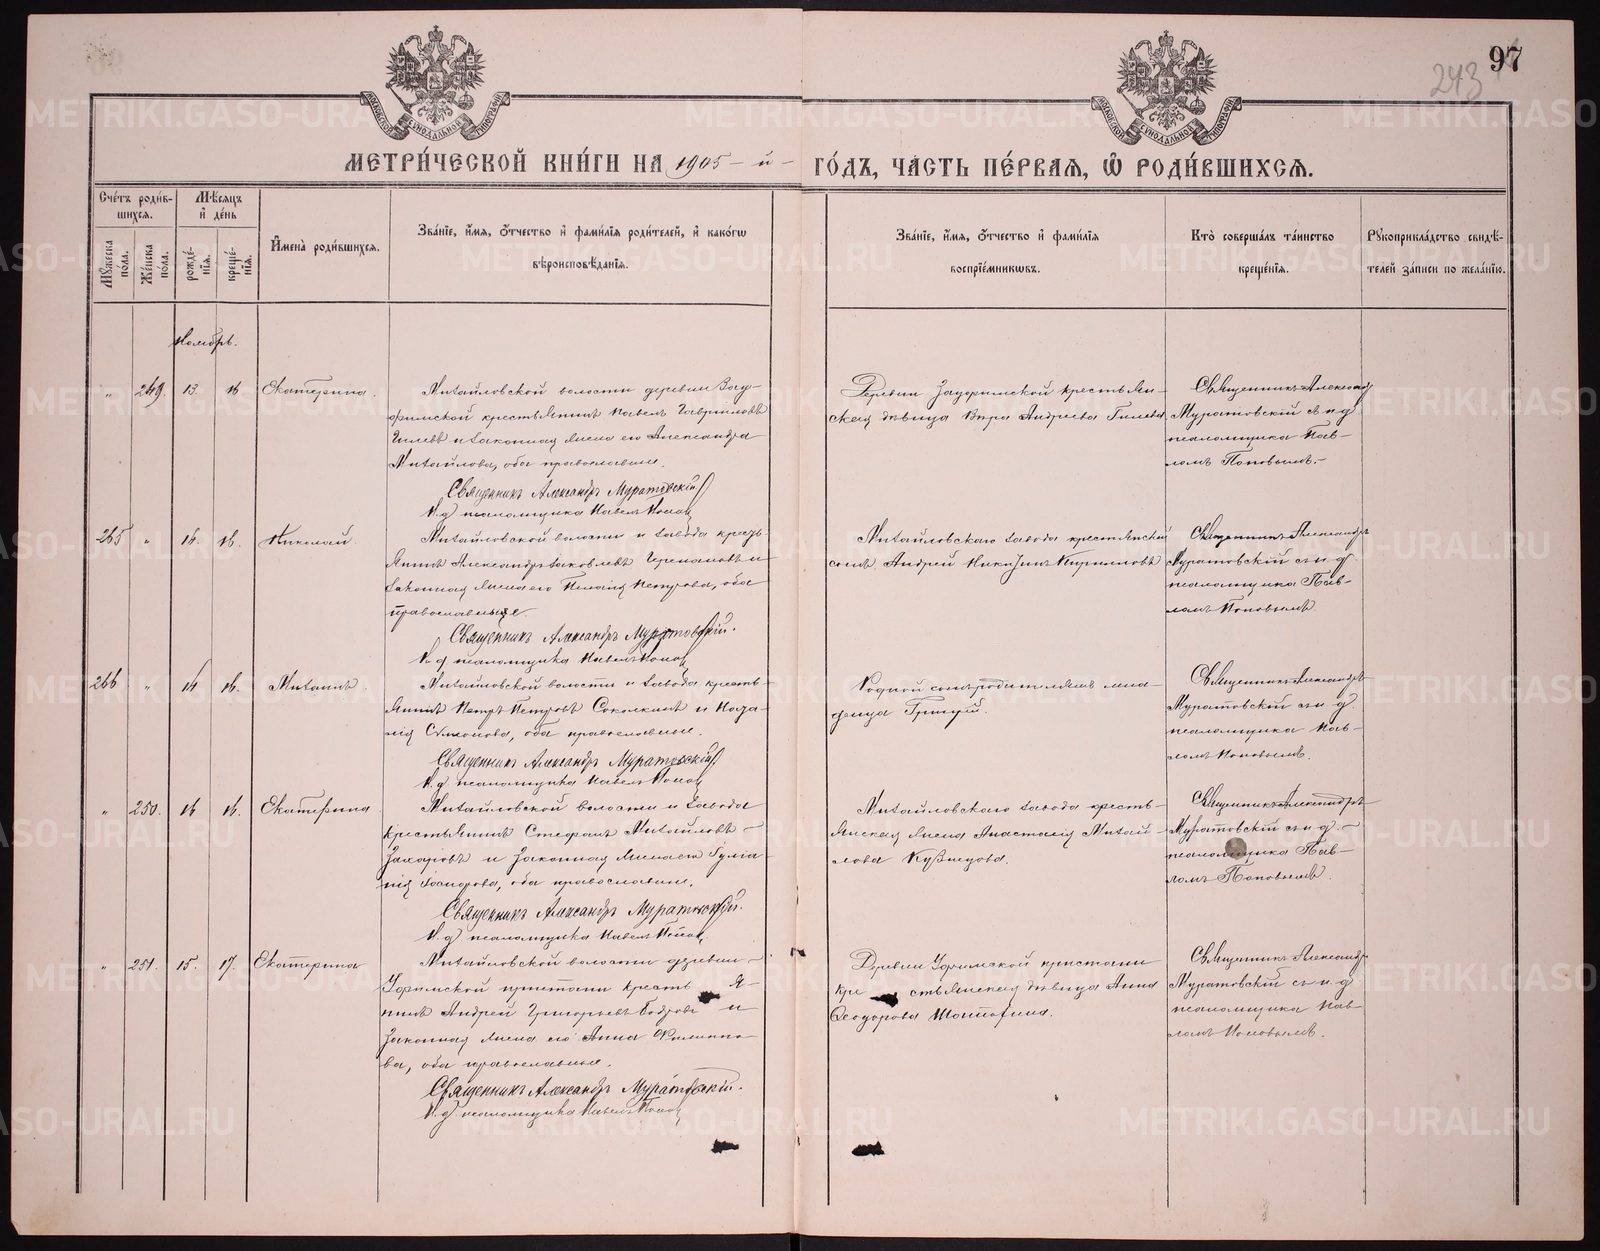 97
243
МОСКОВСКОЙ СѴНОДАЛЬНОЙ ТИПОГРАФІИ
МОСКОВСКОЙ СѴНОДАЛЬНОЙ ТИПОГРАФІИ
МЕТРИ́ЧЕСКОЙ КНИ́ГИ НА 1905-й- ГО́ДЪ, ЧА́СТЬ ПЕ́РВАЯ, Ѡ҆ РОДИ́ВШИХСЯ.
Сче́тъ роди́в-
шихся.
Мꙋ́жеска пола.
Же́нска пола.
Мѣ́сяцъ
и҆ де́нь
рожде́-
нїя.
креще́-
нїя.
И҆мена̀ роди́вшихся.
Зва́нїе, и҆́мя, ѻ҆́тчество и҆ фами́лїя роди́телей, и҆ како́гѡ
вѣроисповѣ́данїя.
Зва́нїе, и҆́мя, ѻ҆́тчество и҆ фами́лїя
воспрїе́мникѡвъ.
Кто̀ соверша́лъ та́инство
креще́нїя.
Рꙋкоприкла́дство свидѣ́-
телей за́писи по жела́нїю.
Ноябрь.
" 249. 13. 16 Екатерина.
Михайловской волости деревни Зауфимской крестьянинъ Павелъ Гавриловъ
Гилевъ и законная жена его Александра
Михайлова, оба православные.
Священникъ Александръ Муратовскій
И. д. псаломщика Павелъ Поповъ
Деревни Зауфимской крестьян-
ская дѣвица Вѣра Андреева Гилева
Священникъ Александръ
Муратовскій съ и. д.
псаломщика Пав-
ломъ Поповымъ.-
265 " 16. Николай.
Михайловской волости и завода кресть-
янинъ Александръ Яковлевъ и
законная жена его Петрова, оба
православные
Священникъ Александръ Муратовскій.
И. д. псаломщика Павелъ Поповъ
Михайловскаго завода крестьянскій
сынъ Андрей Кирилловъ
Священникъ Александръ
Муратовскій съ и. д.
псаломщика Пав-
ломъ Поповымъ
266 " 14 16. Михаилъ.
Михайловской волости и завода кресть-
янинъ Петръ Петровъ Соколкинъ и
оба православные.
Священникъ Александръ Муратовскій
И. д. псаломщика Павелъ Поповъ
Родной сынъ родителей мла-
денца Григорій.
Священникъ Александръ
Муратовскій съ и. д.
псаломщика Пав-
ломъ Поповымъ.
" 250. 16 16. Екатерина
Михайловской волости и завода
крестьянинъ Стефанъ Михайловъ -
Захаровъ и законная жена его
оба православные.
Священникъ Александръ Муратовскій.
И. д. псаломщика Павелъ Поповъ
Михайловскаго завода кресть-
янская жена Анастасія Михай-
лова Кузнецова.
Священникъ Александръ
Муратовскій съ и. д. -
псаломщика Пав-
ломъ Поповымъ.
" 251. 15. 17. Екатерина
Михайловской волости деревни -
Уфимской пристани кресть я-
нинъ Андрей Григорьевъ Бодровъ и
законная жена его Анна Филиппо-
ва, оба православные.
Священникъ Александръ Муратовскій.
И. д. псаломщика Павелъ Поповъ
Деревни Уфимской пристани
кре стьянская дѣвица Анна
Ѳеодорова
Священникъ Александръ
Муратовскій съ и. д.
псаломщика Пав-
ломъ Поповымъ.
METRIKI.GASO-URAL.RU